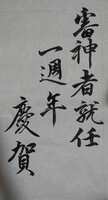 審神者就任
一週年
慶賀